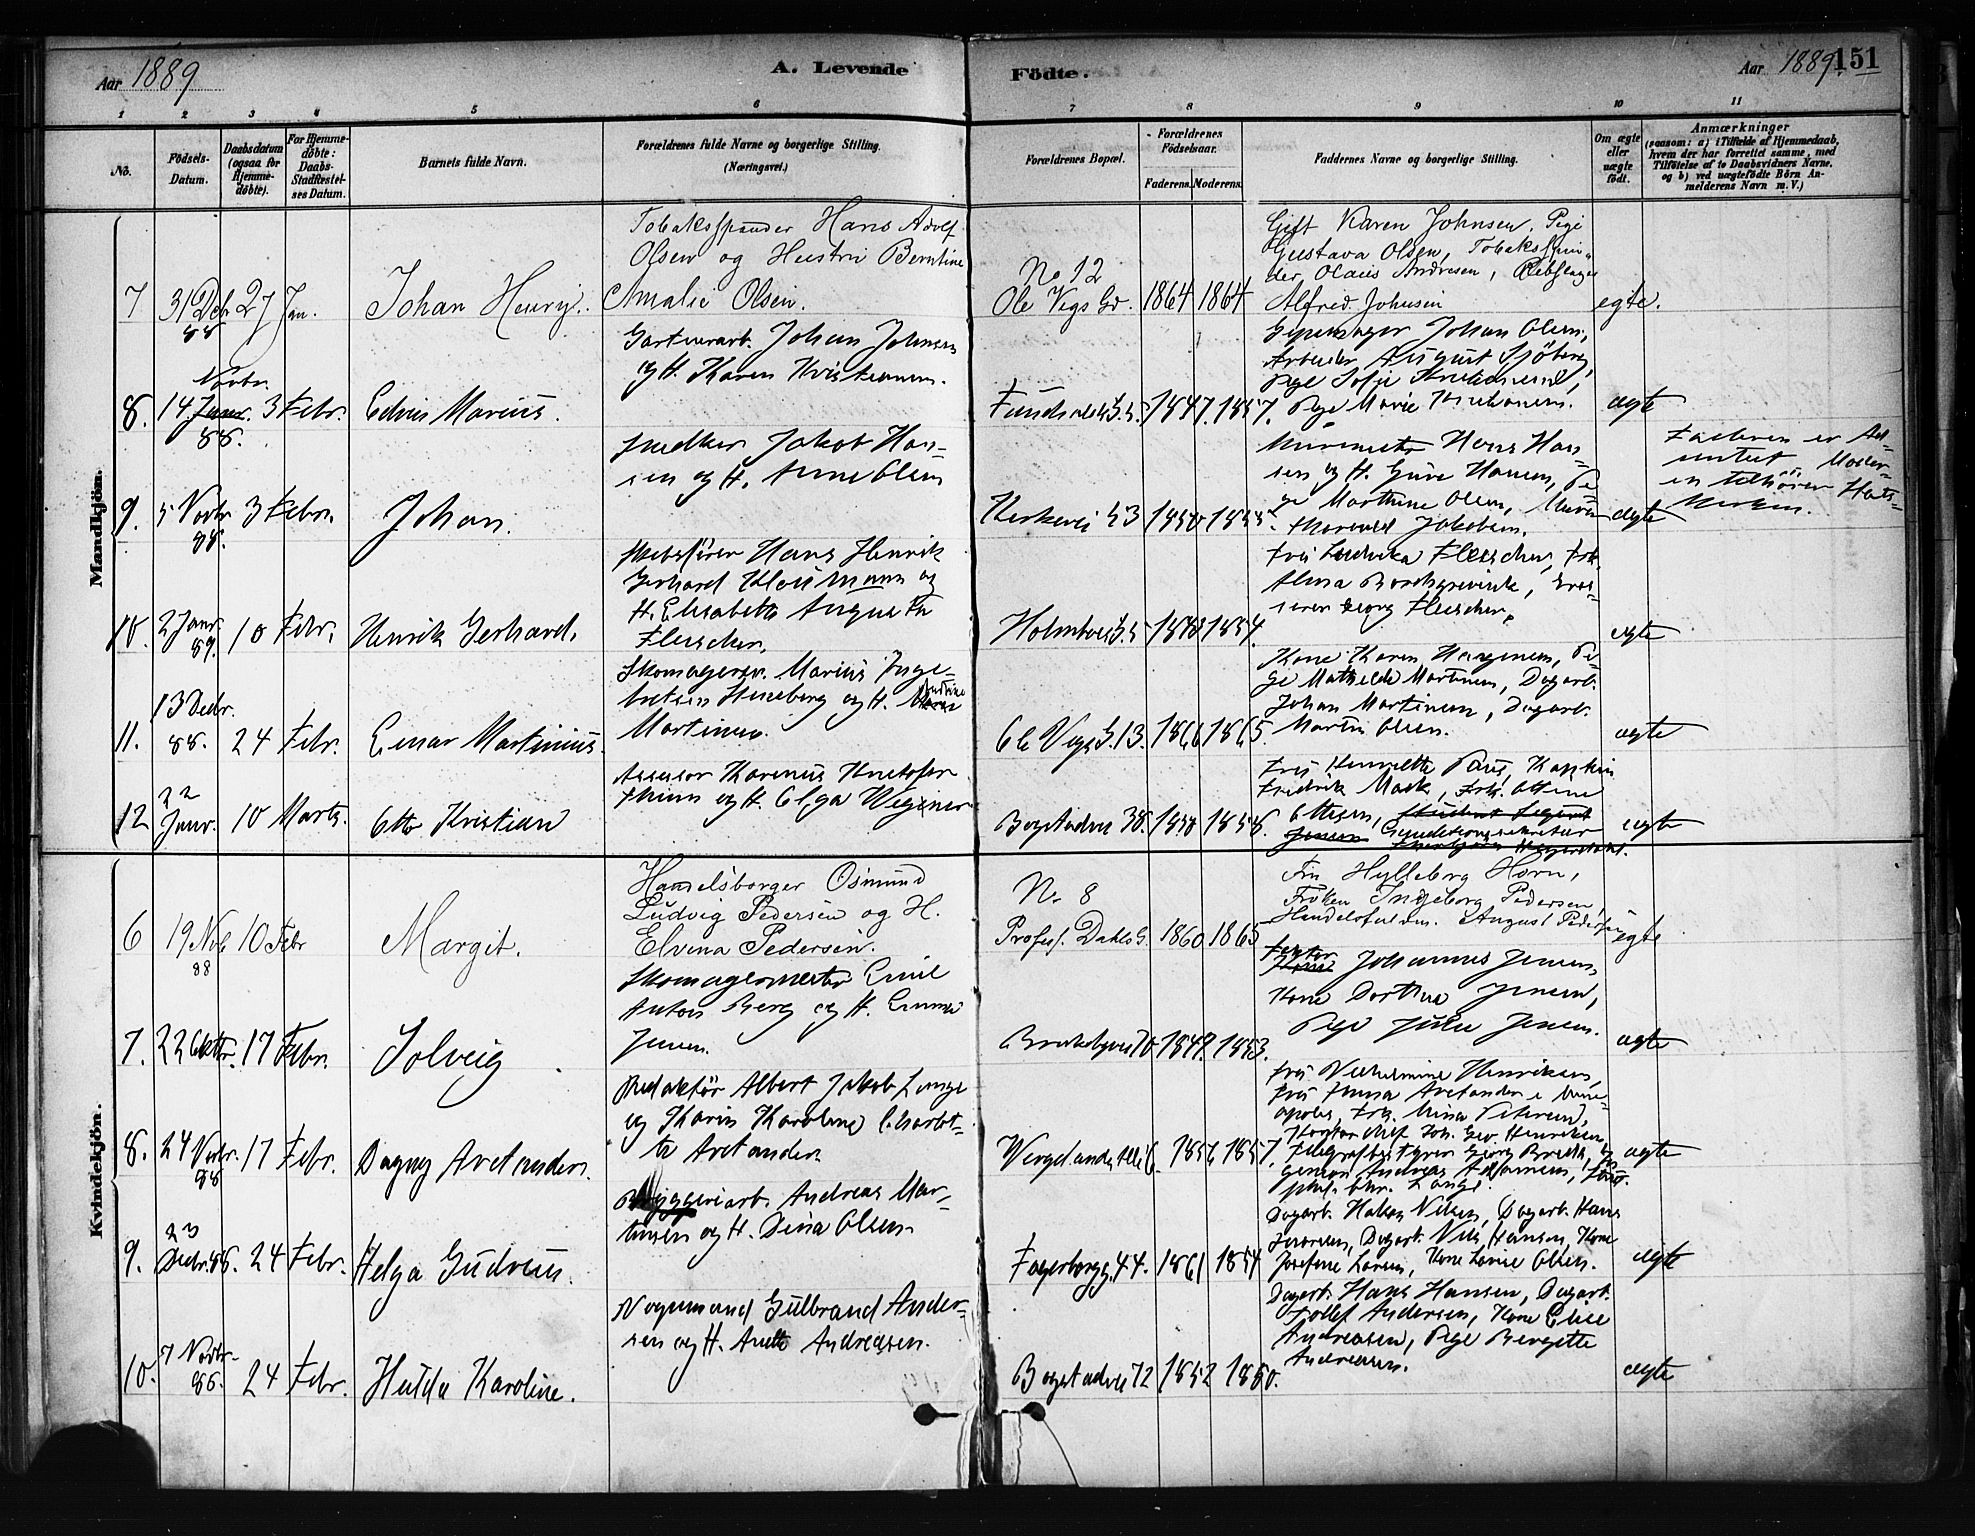 Aar 1889
A. Levende
Födte.
Aar 1889.
151
1 2 3 4 5 6 7 8 9 10 11
No.
Födsels-Datum.
Daabsdatum (ogsaa for Hjemme-döbte).
For Hjemme-döbte: Daabs-Stadfæstel-ses Datum.
Barnets fulde Navn.
Forældrenes fulde Navne og borgerlige Stilling. (Næringsvei.)
Forældrenes Bopæl.
Forældrenes Födselsaar.
Faderens. Moderens.
Faddernes Navne og borgerlige Stilling.
Om ægte eller uægte födt.
Anmærkninger
(saasom: a) i Tilfælde af Hjemmedaab, hvem der har forrettet samme, med Tilföielse af to Daabsvidners Navne, og b) ved uægtefödte Börn An-melderens Navn m. V.)
Mandkjön.
7 31 Decbr 88 27 Jan. Johan Henry.
Tobaksspinder Hans Adolf
Olsen og Hustru Berntine
Amalie Olsen.
No 12
Ole Vigs Gd. 1864 1864
Gift Karen Johnsen, Pige
Gustava Olsen, Tobaksspin-
der Olaus Andresen,
Alfred Johnsen
egte.
8. 14 Novbr. 88. 3 Febr. Edvin Marius.
Gartnerarb. Johan Johnsen
og H. Karen Kristiansen.
1847. 1857.
Johan Olsen,
Arbeider August Sjöberg,
Pige Sofie Kristiansen,
Pige Marie Kristiansen.
ægte
9. 5 Novbr 88. 3 Febr. Johan.
Snedker Jakob Han-
sen og H. Anne Olsen
Kirkevei 53 1850 1855.
Murmester Hans Han-
sen og H. Gina Hansen, Pi-
ge Marthine Olsen, Murer
Thorvald Jakobsen.
ægte
Faderen er
Moder-
en tilhörer
10. 2 Janr. 89. 10 Febr. Henrik Gerhard.
Skibsförer Hans Henrik
Gerhard Kloumann og
H. Elisabeth Augusta
Fleischer.
1854.
Fru Ludvika Fleischer, Frk.
Alma Borchgrevink,
Georg Fleischer.
ægte
11. 13 Decbr. 88. 24 Febr. Einar Martinius.
Skomagersv. Marius Inge-
bretsen Heneberg og H.
Martinsen.
Ole Vigs G. 13. 1866 1865.
Kone Karen Hansen, Pi-
ge Mathilde Martinsen, Dagarb.
Johan Martinsen, Dagarb.
Martin Olsen.
ægte
12 22 Janr. 10 Marts. Otto Kristian
Assessor Karenus Kristofer
Thinn og H. Olga Wegener
Bogstadvei 38. 1850 1858.
Fru Henriette Paus, Kaptein
Fredrik Mack, Frk. Othine
Ottesen, Student
Jensen
ægte
Kvindekjön.
6 19 Nov 88 10 Febr Margit.
Handelsborger Osmund
Ludvig Pedersen og H.
Elvina Pedersen.
No 8
Profes. Dahls G. 1860 1865
Fru Hylleborg Horn,
Fröken Ingeborg Pedersen,
Handelsfuldm. August Pedersen
egte
7. 22 Oktbr. 17 Febr. Solveig
Skomagermester Emil
Anton Berg og H. Emma
Jensen.
1849. 1853.
Johannes Jensen,
Kone Dorthea Jensen,
Pige Julie Jensen.
ægte
8. 24 Novbr. 88 17 Febr. Dagny Avelander.
Redaktör Albert Jakob Lange
og Karin Karoline Charlot-
te Avelander.
Wergelands Alle 6. 1856 1857.
Fru Vilhelmine Henriksen,
Fru Anna Avelander i Mine-
apolis, Frk. Mina Petersen,
Joh. Geo. Henriksen,
Telegrafbestyrer Georg Breda,
Andreas
phil. Chr. Lange.
ægte
9. 23 Decbr. 88. 24 Febr. Helga Gudrun.
Bryggeriarb. Andreas Mar-
tinsen og H. Dina Olsen.
Fagerborgg. 44. 1861 1854
Dagarb. Hakon Nilsen, Dagarb. Hans
Dagarb. Nils Hansen, Kone
Josefine Larsen, Kone Lovise Olsen.
egte
10. 7 Novbr. 88. 24 Febr. Hulda Karoline.
Vognmand Gulbrand Ander-
sen og H. Anette Andreasen.
Bogstadvei 72 1852 1850.
Dagarb. Hans Hansen, Dagarb.
Tollef Andersen, Kone Elise
Andreasen, Pige Bergitte
Andreasen.
ægte